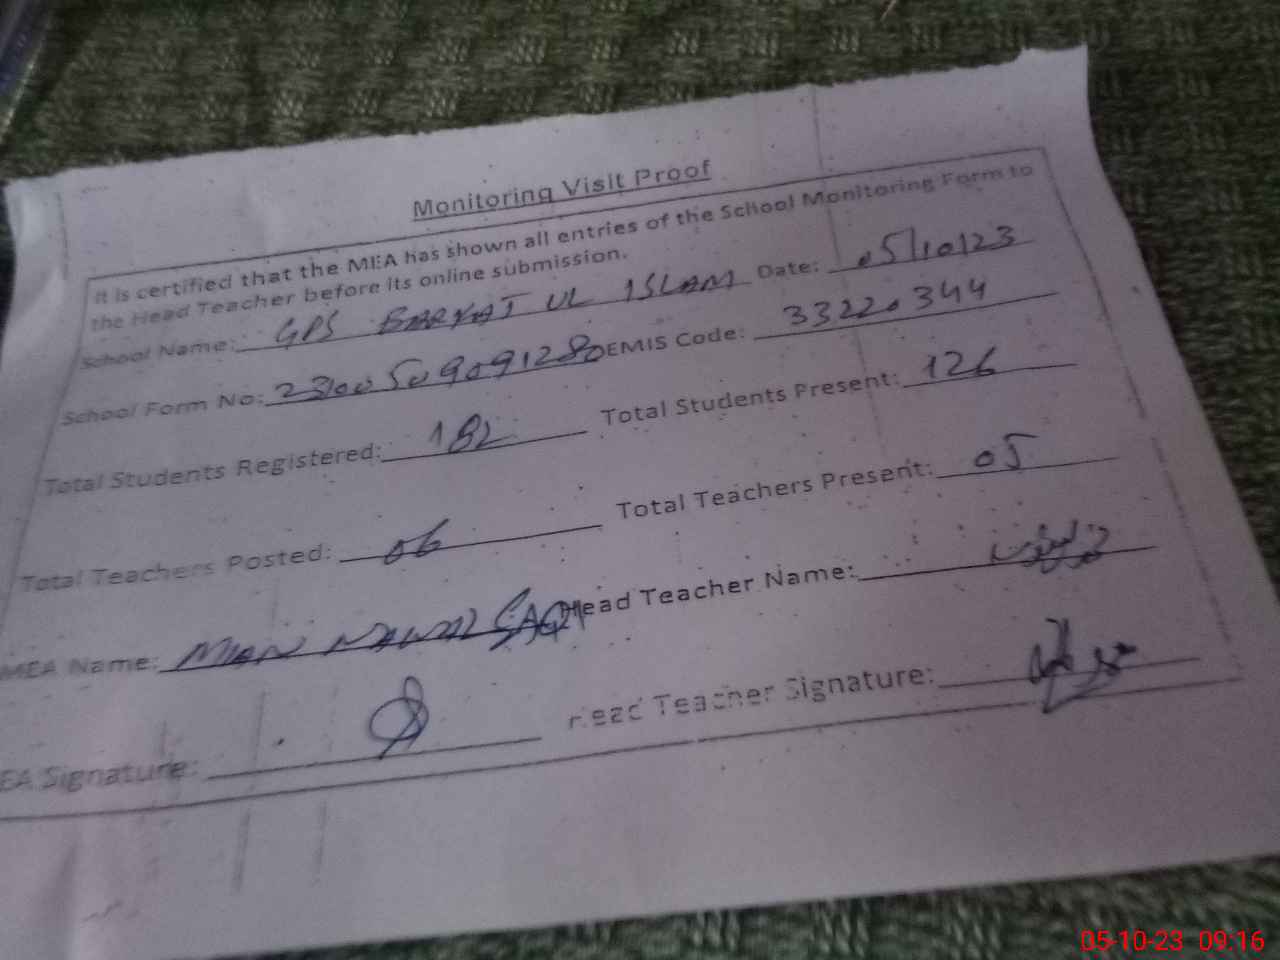 Monitoring Visit Proof
It is certified that the MEA has shown all entries of the School Monitoring Form to
the Head Teacher before its online submission.
School Name: GPS BARKAT UL ISLAM Date: 05/10/23
School Form No: 23100509091280 EMIS Code: 33220344
Total Students Registered: 182 Total Students Present: 126
Total Teachers Posted: 06 Total Teachers Present: 05
MEA Name: MIAN NAWAZ Head Teacher Name:
EA Signature: Head Teacher Signature:
05-10-23 09:16